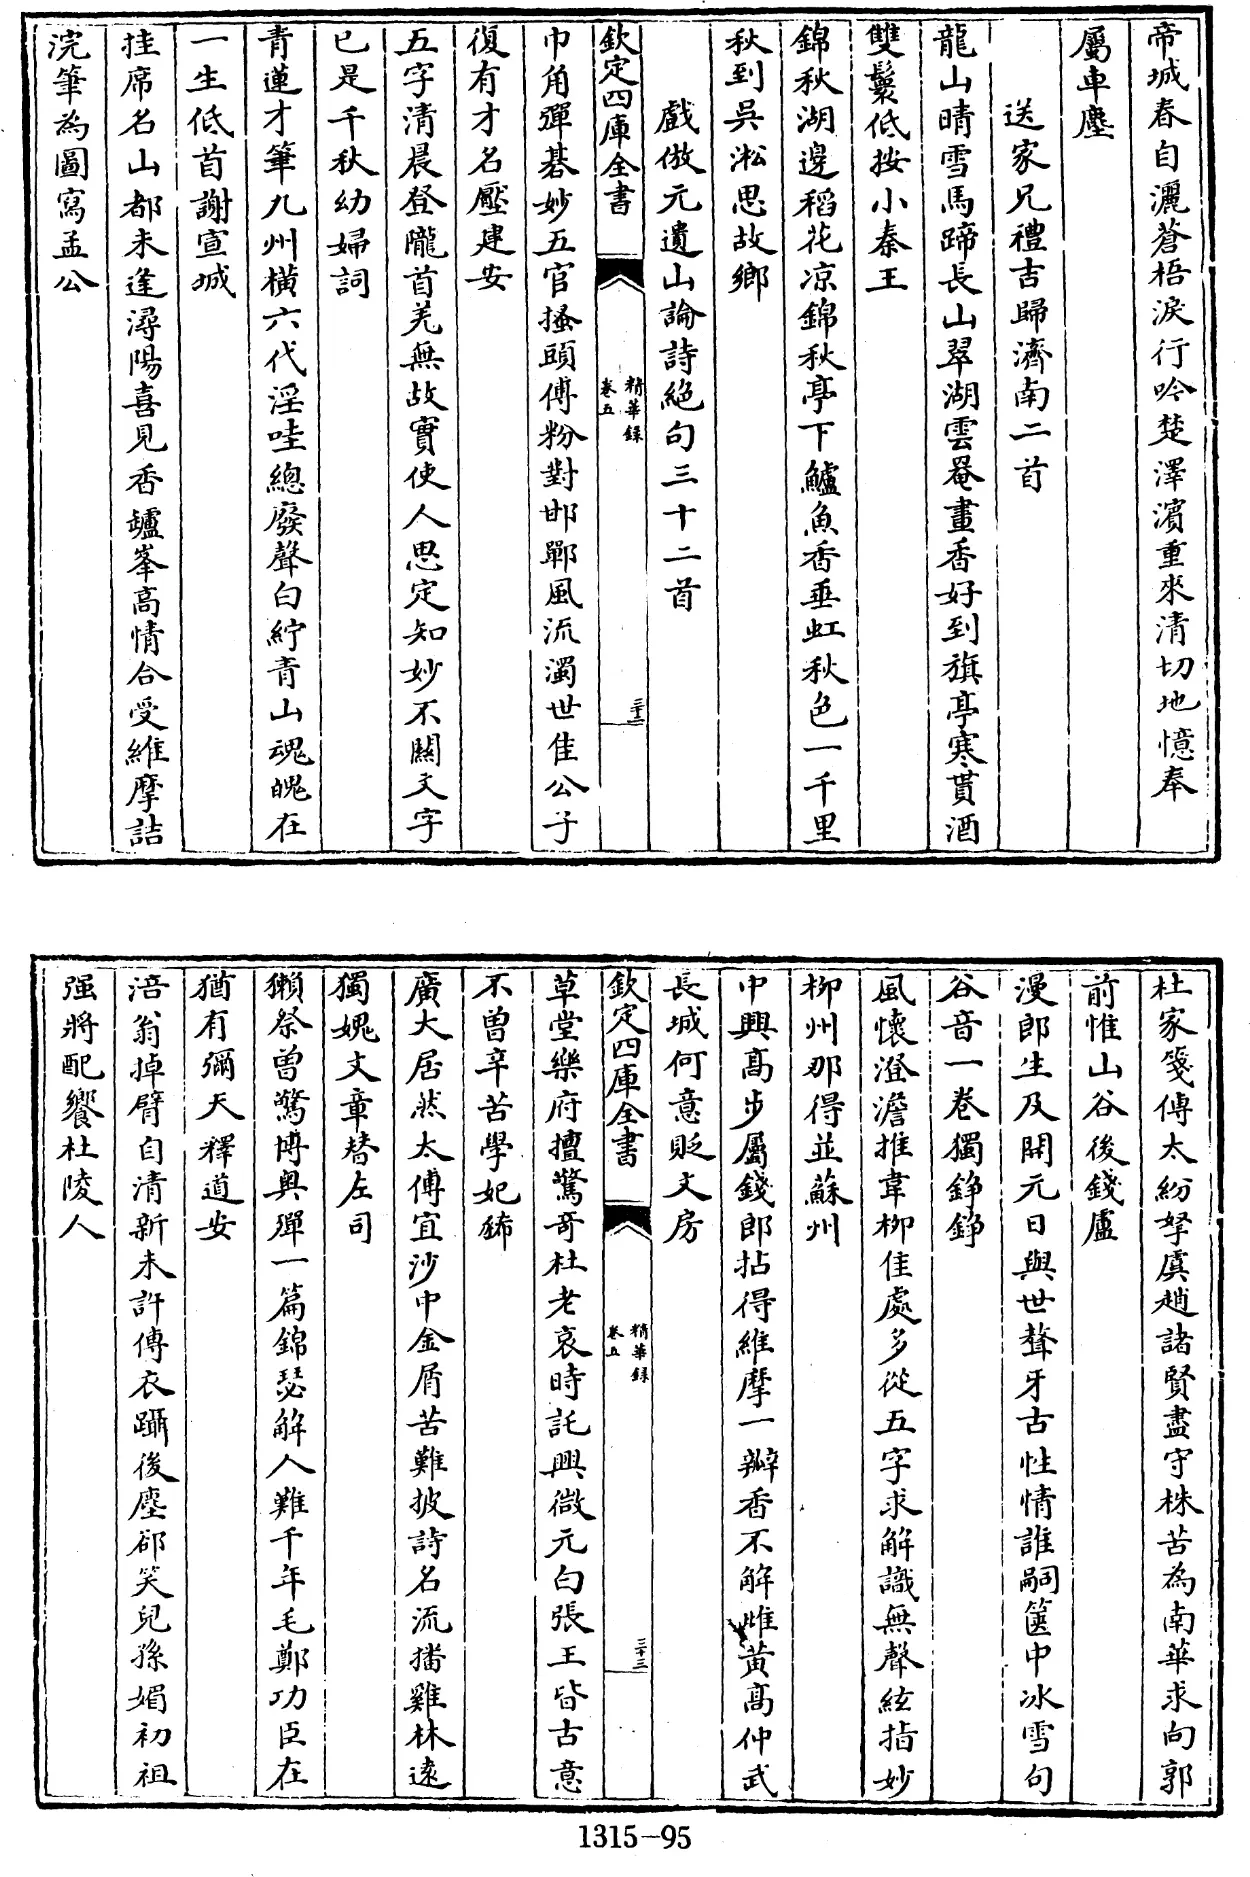 帝城春自灑蒼梧淚行吟楚澤濱重來清切地憶奉
屬車塵
送家兄禮吉歸濟南二首
龍山晴雪馬蹄長山翠湖雲罨畫香好到旗亭寒貰酒
雙鬟低按小秦王
錦秋湖邊稻花凉錦秋亭下鱸魚香垂虹秋色一千里
秋到吳淞思故鄉
戲倣元遺山論詩絶句三十二首
欽定四庫全書
精華錄
卷五
三十二
巾角彈棊妙五官搔頭傅粉對邯鄲風流濁世佳公子
復有才名壓建安
五字清晨登隴首羌無故實使人思定知妙不關文字
已是千秋幼婦詞
青蓮才筆九州橫六代淫哇總廢聲白紵青山魂魄在
一生低首謝宣城
挂席名山都未逢潯陽喜見香爐峯高情合受維摩詰
浣筆為圖寫孟公
杜家箋傳太紛挐虞趙諸賢盡守株苦為南華求向郭
前惟山谷後錢盧
漫郎生及開元日與世聱牙古性情誰嗣篋中冰雪句
谷音一卷獨錚錚
風懷澄澹推韋柳佳處多從五字求解識無聲絃指妙
柳州那得並蘇州
中興髙步屬錢郎拈得維摩一瓣香不解雌黃髙仲武
長城何意貶文房
欽定四庫全書
精華錄
卷五
三十三
草堂樂府擅驚奇杜老哀時託興微元白張王皆古意
不曾辛苦學妃豨
廣大居然太傅宜沙中金屑苦難披詩名流播雞林遠
獨媿文章替左司
獺祭曾驚博奥殫一篇錦瑟解人難千年毛鄭功臣在
猶有彌天釋道安
涪翁掉臂自清新未許傳衣躡後塵郤笑兒孫媚初祖
强將配饗杜陵人
1315-95